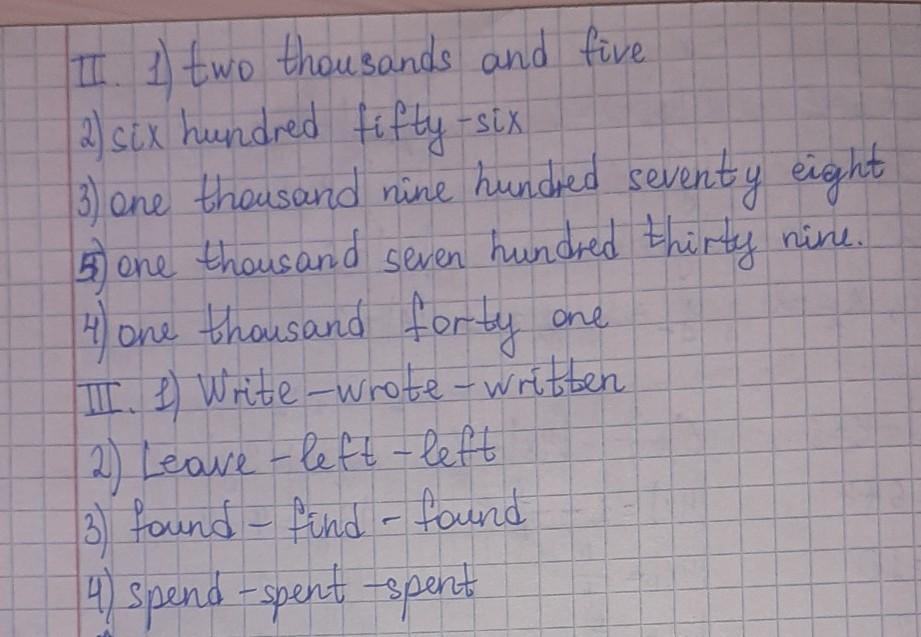 II. 1) two thousands and five
2) six hundred fifty-six
3) one thousand nine hundred seventy eight
5) one thousand seven hundred thirty nine.
4) one thousand forty one
III. 1) Write - wrote - written
2) Leave - left - left
3) found - find - found
4) spend - spent - spent